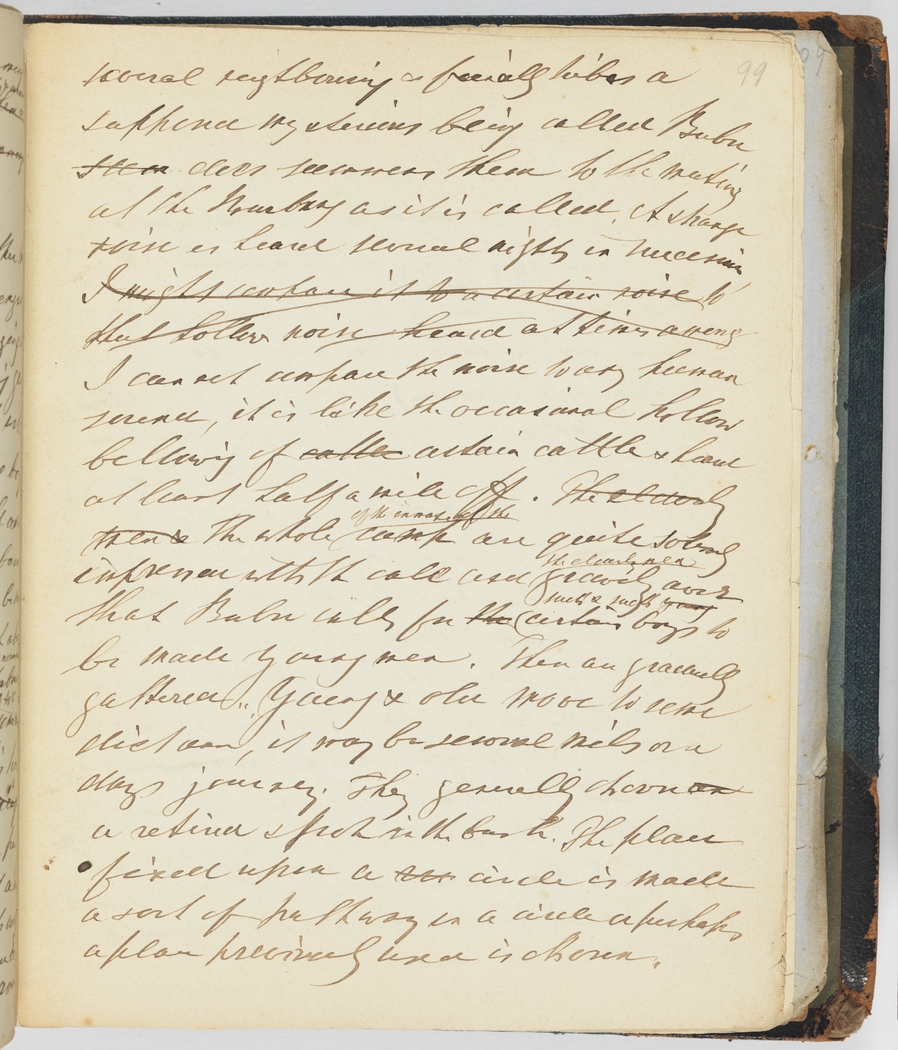 99
several neighbouring or friendly tribes a
supposed mysterious being called Bubu
soon does summons them to the meeting
at the as it is called. A strange
noise is heard several nights in succession
I might compare it to a certain noise to
that hollow noise heard at times among
I cannot compare the noise to any human
sound, it is like the occasional hollow
bellowing of cattle certain cattle & heard
at least half a mile off. The elderly
of the inmates of the
men & The whole camp are quite solemnly
the elderly men
impressed with the call and gravely aver
such & such young
that Bubu calls for the certain boys to
be made young men. Then are gradually
gathered. Young & old move to some
distance, it may be several miles or a
days journey. They generally choose an
a retired spot in the bush. The place
fixed upon a circle is made
a sort of pathway in a circle or perhaps
a place previously used is chosen.